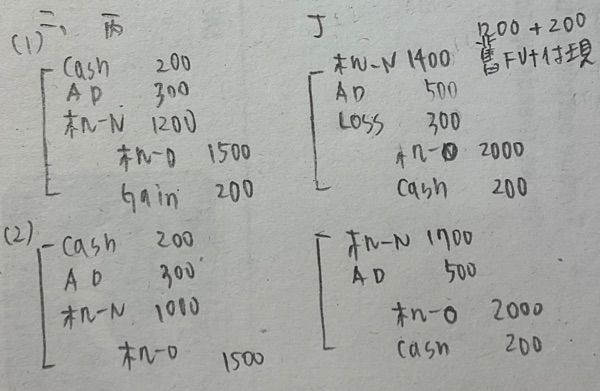 二、丙
(1)
Cash 200
AD 300
机-N 1200
机-O 1500
Gain 200
丁
1200 + 200
舊FV+付現
机-N 1400
AD 500
Loss 300
机-O 2000
Cash 200
(2)
Cash 200
AD 300
机-N 1000
机-O 1500
机-N 1700
AD 500
机-O 2000
Cash 200